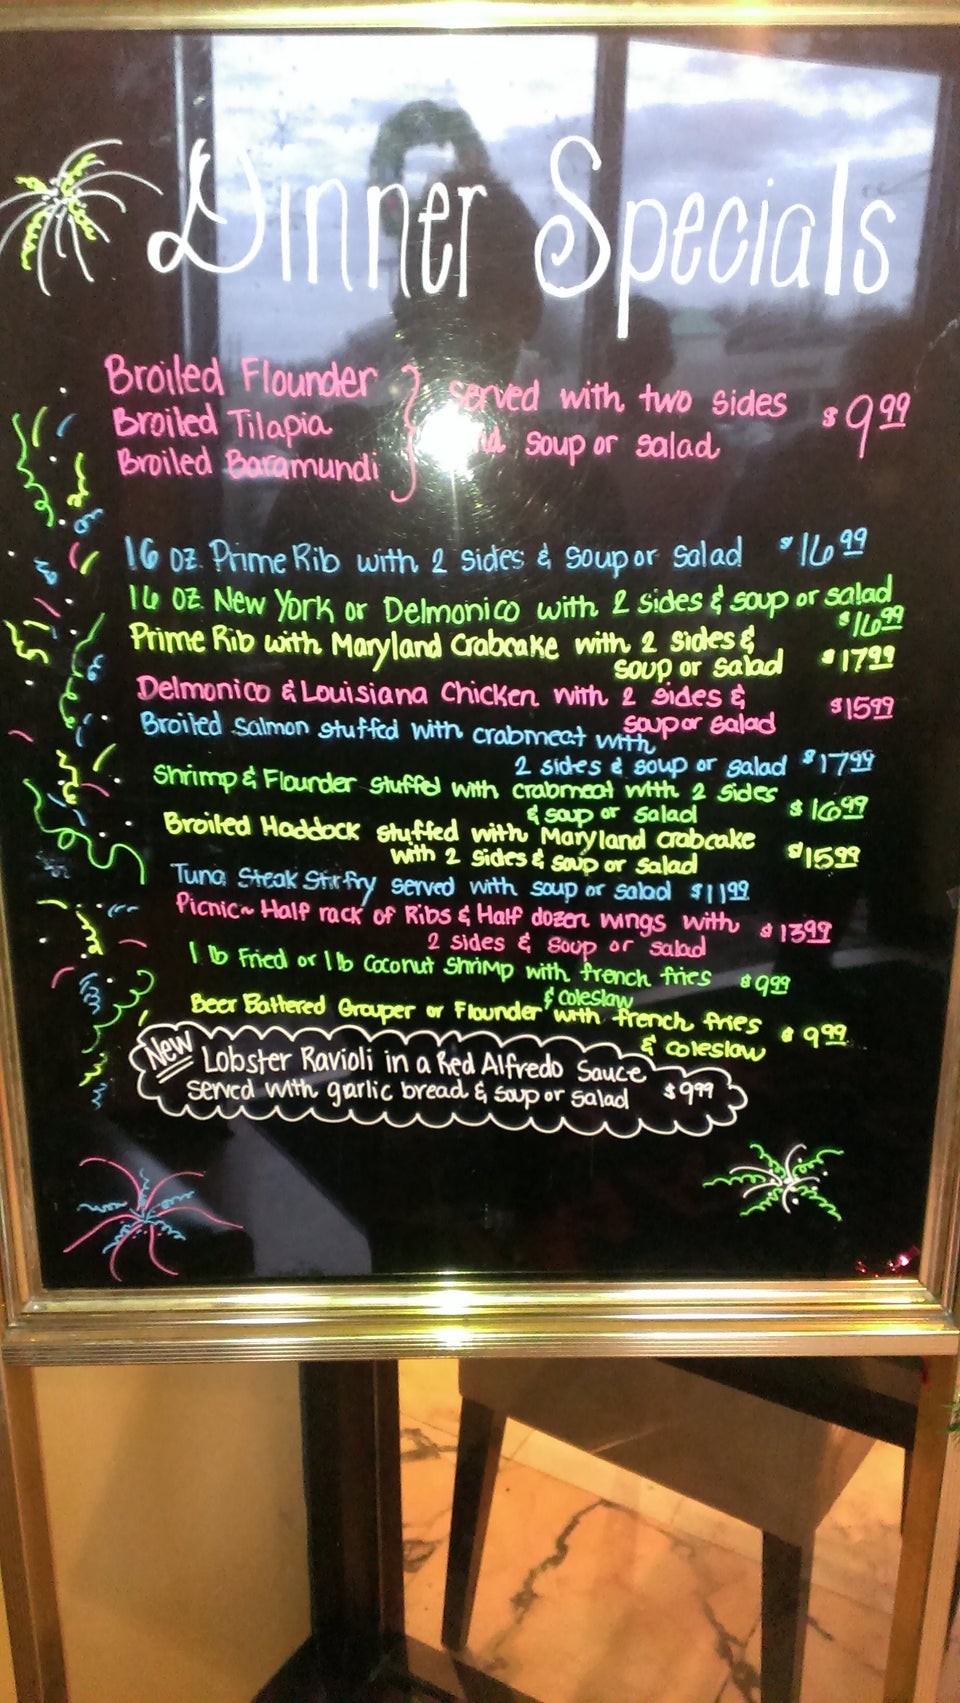 Dinner Specials
Broiled Flounder } served with two sides $9.99
Broiled Tilapia
and soup or salad
Broiled Baramundi
16 oz. Prime Rib with 2 sides & soup or salad $16.99
16 oz. New York or Delmonico with 2 sides & soup or salad
$16.99
Prime Rib with Maryland Crabcake with 2 sides &
soup or salad $17.99
Delmonico & Louisiana Chicken with 2 sides & $15.99
soup or salad
Broiled Salmon stuffed with crabmeat with
2 sides & soup or salad $17.99
Shrimp & Flounder stuffed with crabmeat with 2 sides
& soup or salad $16.99
Broiled Haddock stuffed with Maryland crabcake
with 2 sides & soup or salad $15.99
Tuna Steak Stirfry served with soup or salad $11.99
Picnic~ Half rack of Ribs & Half dozen wings with $13.99
2 sides & soup or salad
1 lb Fried or 1 lb Coconut Shrimp with french fries $9.99
& coleslaw
Beer Battered Grouper or Flounder with french fries $9.99
& coleslaw
New Lobster Ravioli in a Red Alfredo Sauce
served with garlic bread & soup or salad $9.99